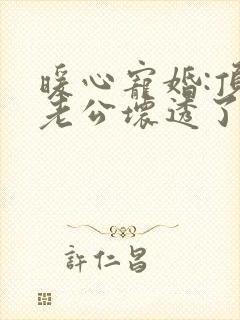 暖心寵婚:頂
老公壞透了
許仁昌